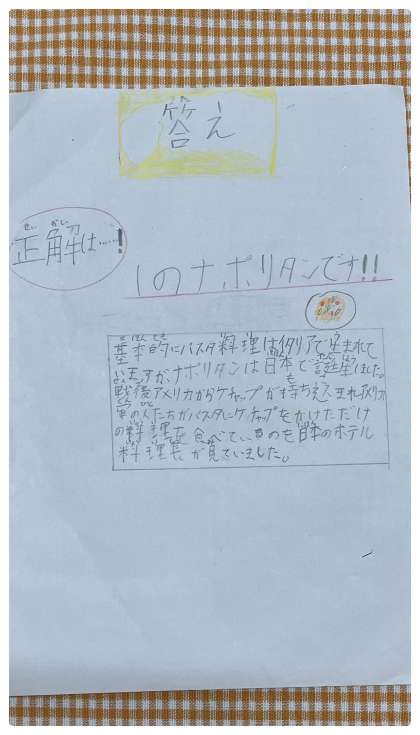 答え
せい かい
正解は……!
1のナポリタンです!!
基本的にパスタ料理はイタリアで生まれて
いますがナポリタンは日本で誕生しました。
戦後アメリカからケチャップが持ちこまれアメリカ
の人たちがパスタにケチャップをかけただけ
の料理を食べているのを日本のホテル
料理長が見ていました。